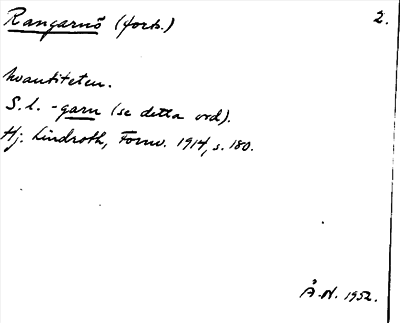 Rangarnö (forts.) 2.
kvantiteten.
S. l. -garn (se detta ord).
Hj. Lindroth, Fornv. 1914, s. 180.
Å.N. 1952.